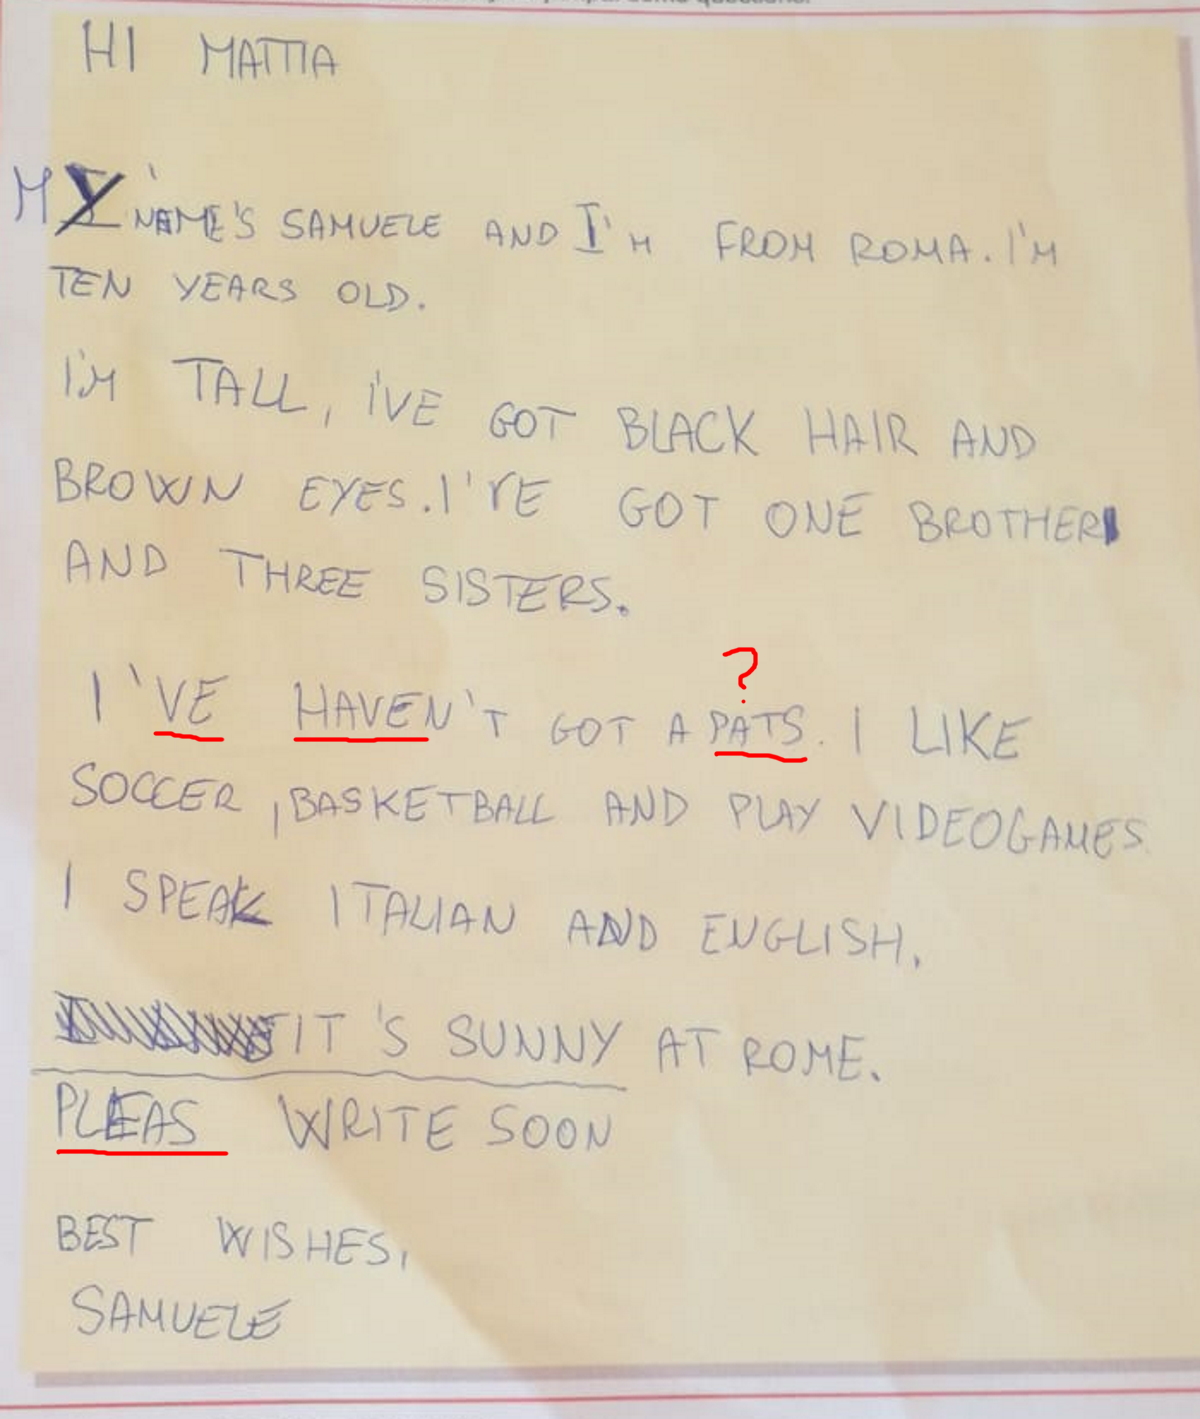 HI MATTIA
MY NAME'S SAMUELE AND I'M FROM ROMA. I'M
TEN YEARS OLD.
I'M TALL, I'VE GOT BLACK HAIR AND
BROWN EYES. I'VE GOT ONE BROTHER
AND THREE SISTERS.
?
I'VE HAVEN'T GOT A PATS. I LIKE
SOCCER, BASKETBALL AND PLAY VIDEOGAMES
I SPEAK ITALIAN AND ENGLISH.
IT'S SUNNY AT ROME.
PLEAS WRITE SOON
BEST WISHES,
SAMUELE